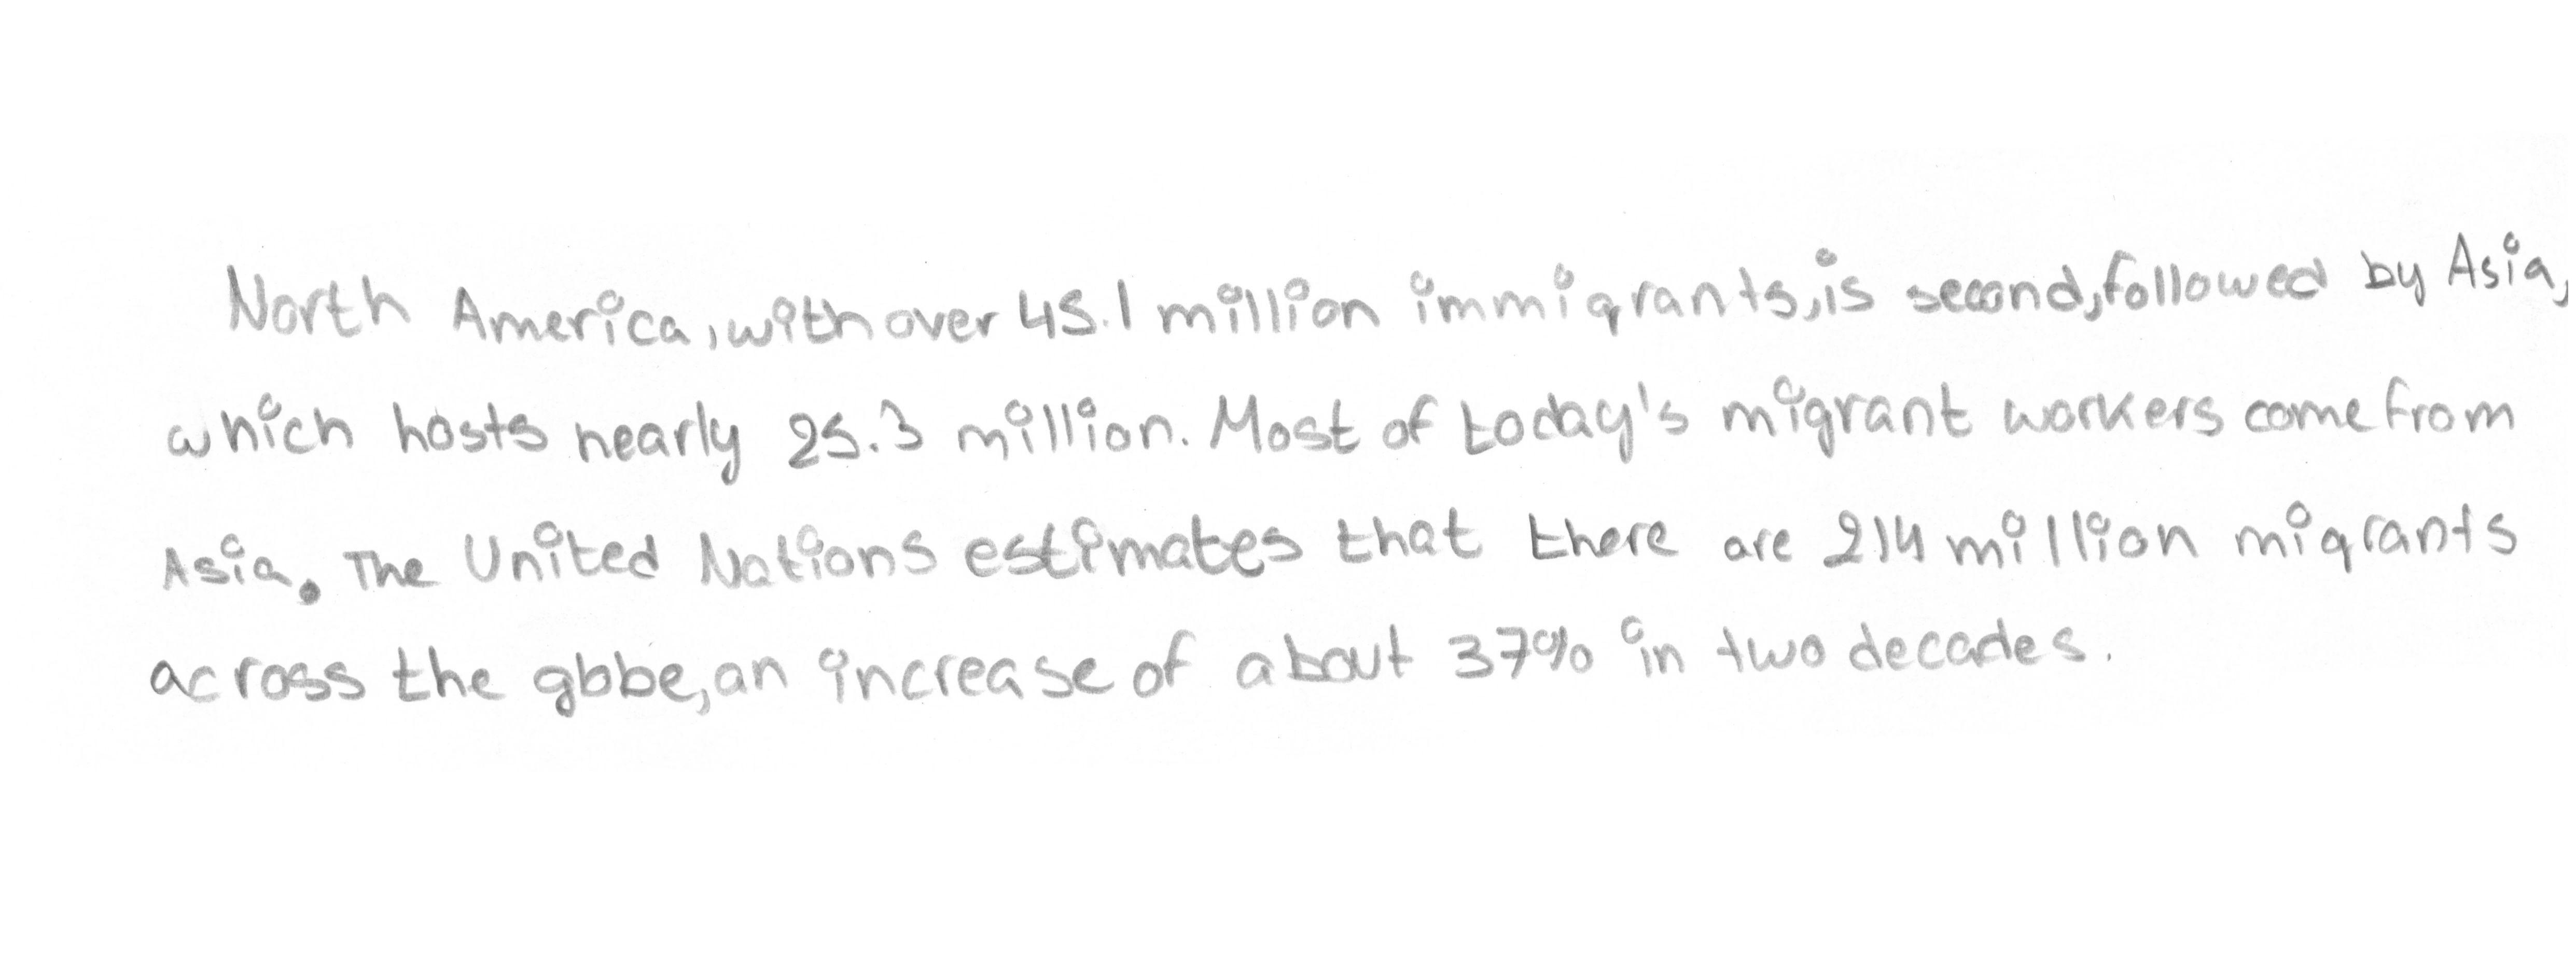 North America, with over 45.1 million immigrants, is second, followed by Asia,
which hosts nearly 25.3 million. Most of today's migrant workers come from
Asia. The United Nations estimates that there are 214 million migrants
across the globe, an increase of about 37% in two decades.